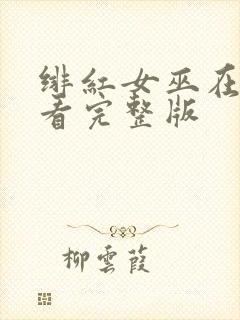 绯红女巫在
看完整版
柳雲葭